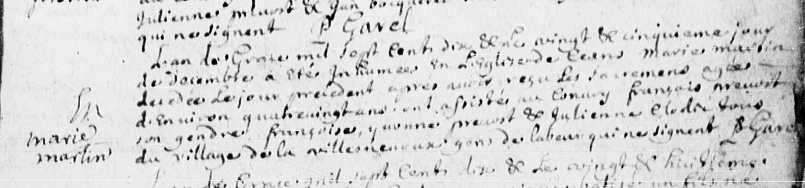 Julienne prevost & Jan
qui ne signent P Garel
L'an de Grace mil sept cents dix & Le vingt & cinquieme jour
de decembre a été Inhumée En L'Eglize de Ceans Marie martin
decedée Le jour precedent aprés avoir reçu Les sacremens agée
d'Environ quatrevingt ans ont assistés au Convoy françois prevost
son gendre, françoise, yvonne prevost & Julienne tous
du village de la gens de labeur qui ne signent P Garel
marie
martin
L'an de Grace mil sept cents dix & Le vingt & huitieme